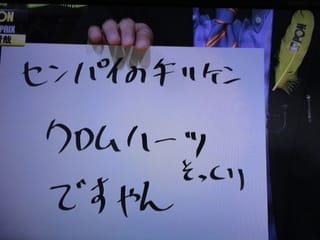 PON
PRIX
センパイのキリケン
クロムハーツ
そっくり
ですやん
PON